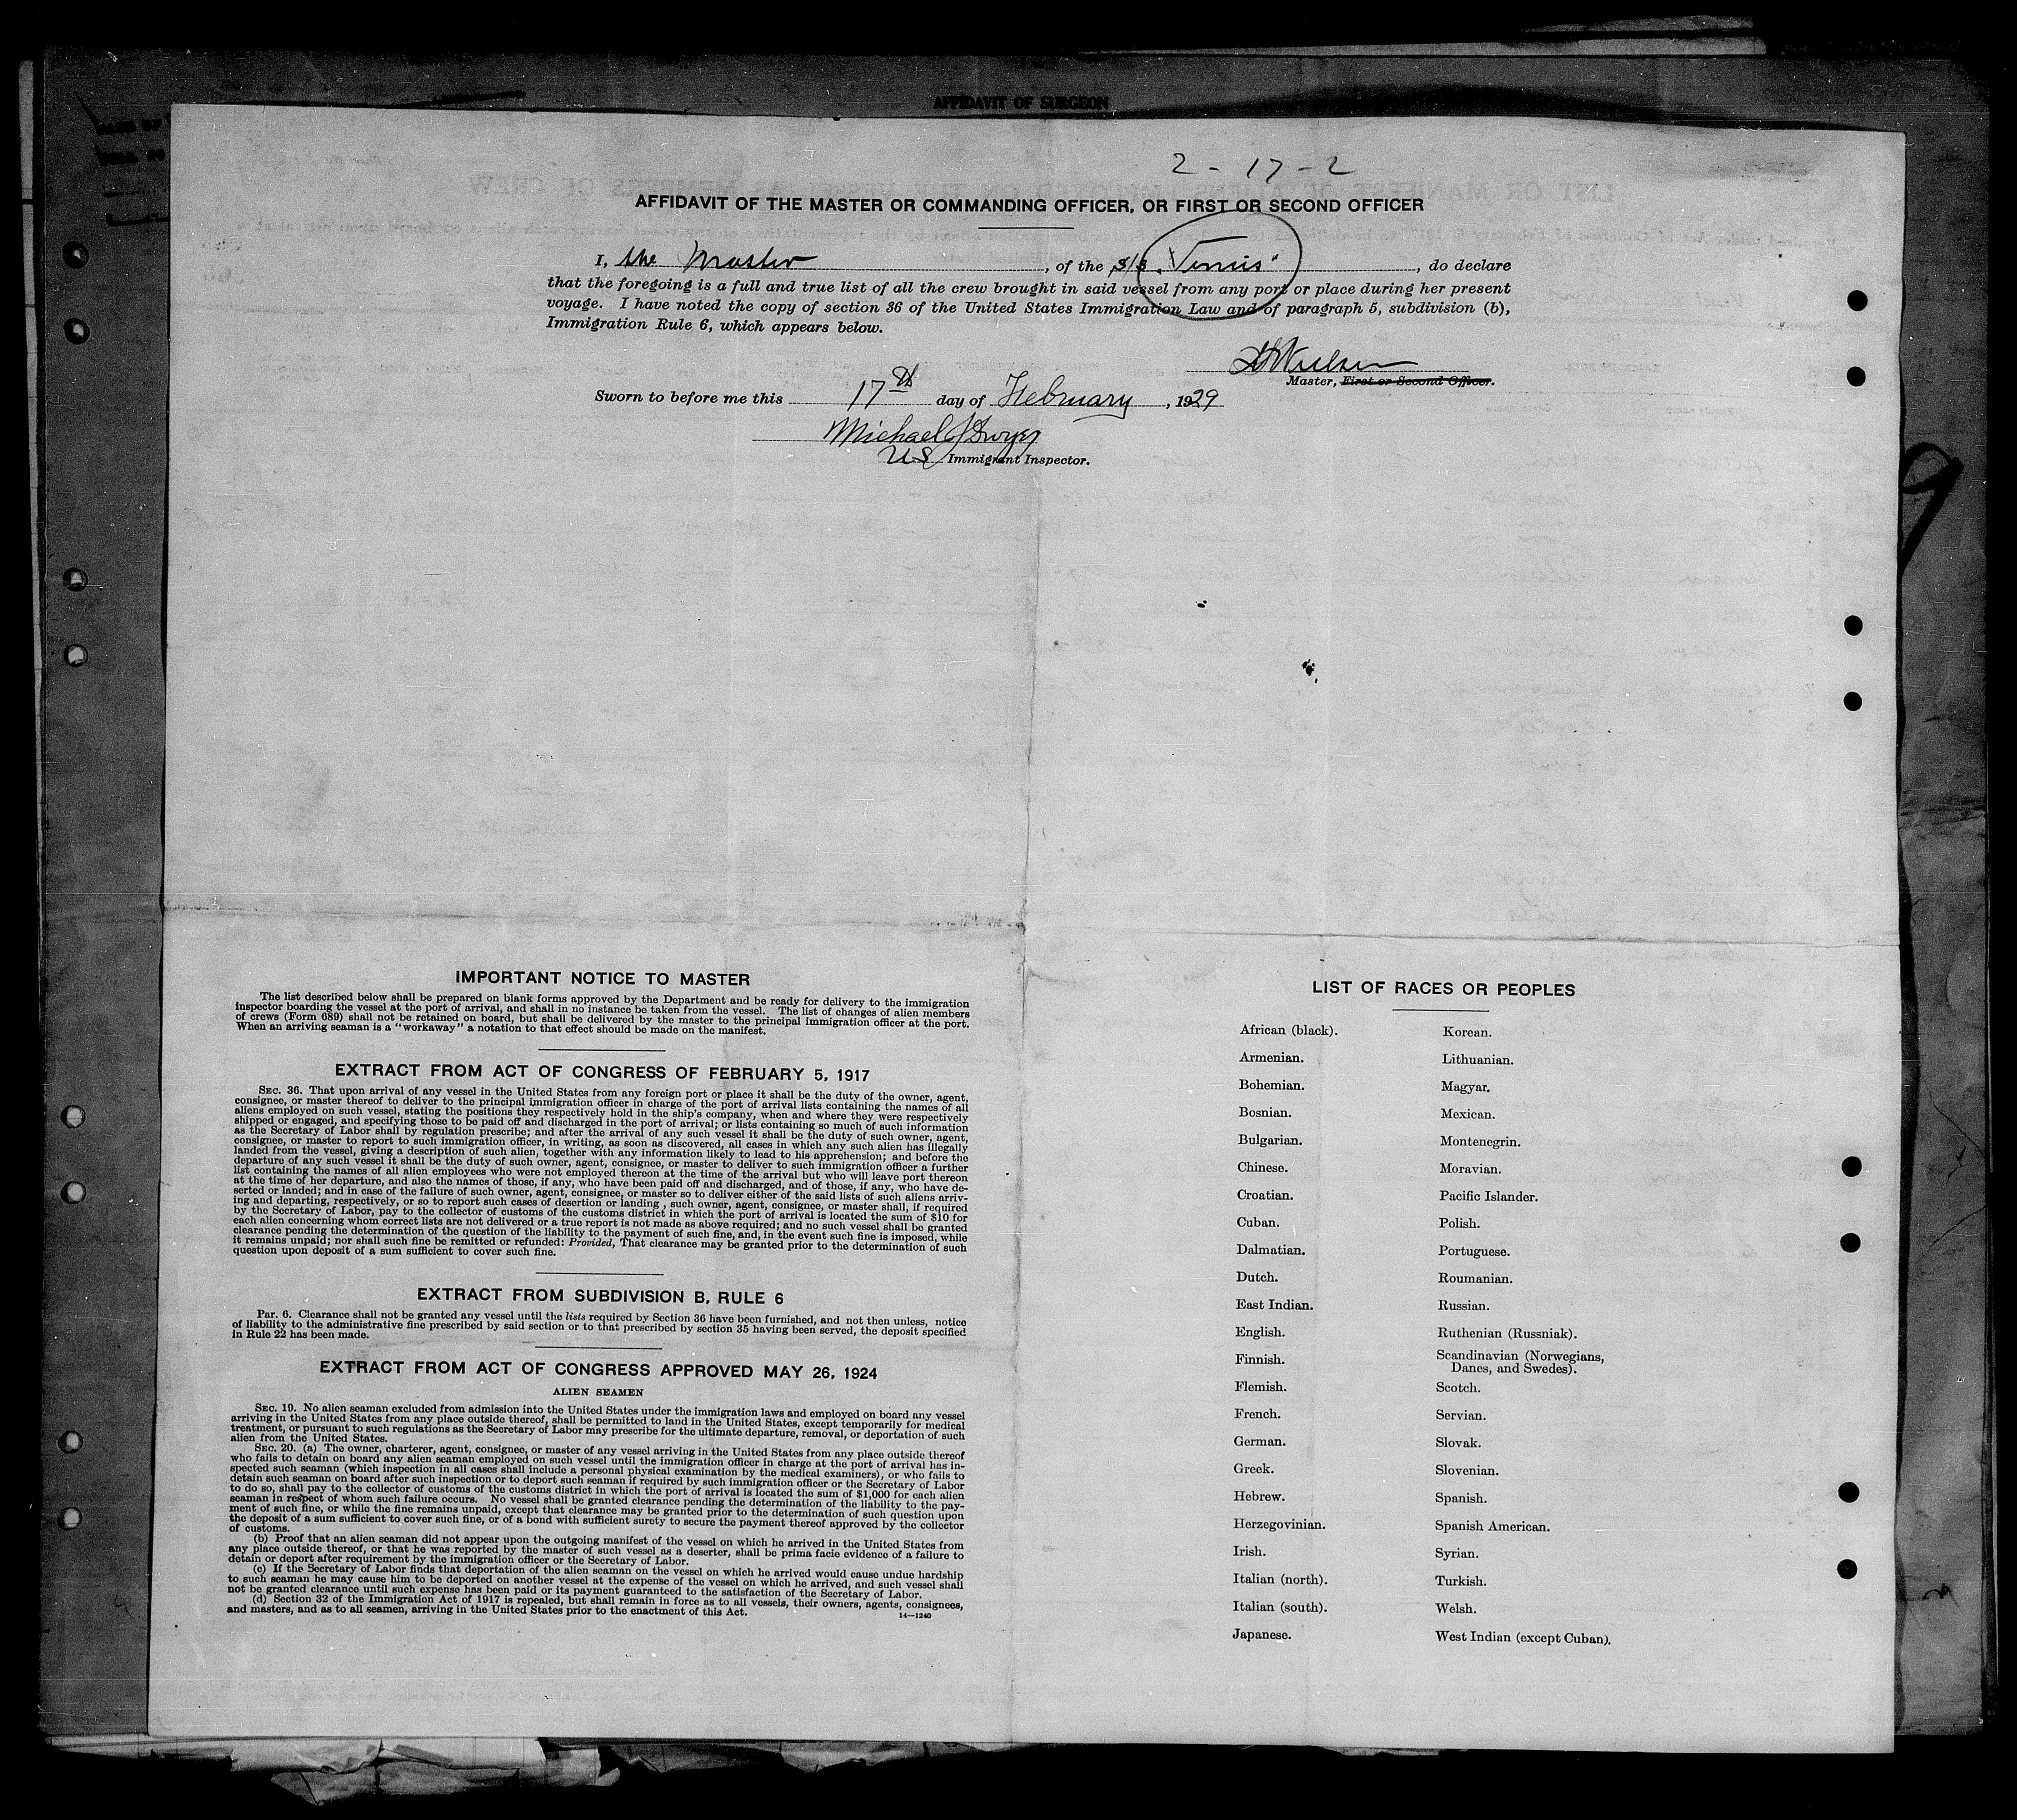 AFFIDAVIT OF SURGEON
2 - 17 - 2
AFFIDAVIT OF THE MASTER OR COMMANDING OFFICER, OR FIRST OR SECOND OFFICER
I, the Master, of the S/S "Venus", do declare
that the foregoing is a full and true list of all the crew brought in said vessel from any port or place during her present
voyage. I have noted the copy of section 36 of the United States Immigration Law and of paragraph 5, subdivision (b),
Immigration Rule 6, which appears below.
Master, First or Second Officer.
Sworn to before me this 17th day of February, 1929
Michael J Dwyer
US Immigrant Inspector.
9
IMPORTANT NOTICE TO MASTER
The list described below shall be prepared on blank forms approved by the Department and be ready for delivery to the immigration
inspector boarding the vessel at the port of arrival, and shall in no instance be taken from the vessel. The list of changes of alien members
of crews (Form 689) shall not be retained on board, but shall be delivered by the master to the principal immigration officer at the port.
When an arriving seaman is a "workaway" a notation to that effect should be made on the manifest.
EXTRACT FROM ACT OF CONGRESS OF FEBRUARY 5, 1917
SEC. 36. That upon arrival of any vessel in the United States from any foreign port or place it shall be the duty of the owner, agent,
consignee, or master thereof to deliver to the principal immigration officer in charge of the port of arrival lists containing the names of all
aliens employed on such vessel, stating the positions they respectively hold in the ship's company, when and where they were respectively
shipped or engaged, and specifying those to be paid off and discharged in the port of arrival; or lists containing so much of such information
as the Secretary of Labor shall by regulation prescribe; and after the arrival of any such vessel it shall be the duty of such owner, agent,
consignee, or master to report to such immigration officer, in writing, as soon as discovered, all cases in which any such alien has illegally
landed from the vessel, giving a description of such alien, together with any information likely to lead to his apprehension; and before the
departure of any such vessel it shall be the duty of such owner, agent, consignee, or master to deliver to such immigration officer a further
list containing the names of all alien employees who were not employed thereon at the time of the arrival but who will leave port thereon
at the time of her departure, and also the names of those, if any, who have been paid off and discharged, and of those, if any, who have de-
serted or landed; and in case of the failure of such owner, agent, consignee, or master so to deliver either of the said lists of such aliens arriv-
ing and departing, respectively, or so to report such cases of desertion or landing , such owner, agent, consignee, or master shall, if required
by the Secretary of Labor, pay to the collector of customs of the customs district in which the port of arrival is located the sum of $10 for
each alien concerning whom correct lists are not delivered or a true report is not made as above required; and no such vessel shall be granted
clearance pending the determination of the question of the liability to the payment of such fine, and, in the event such fine is imposed, while
it remains unpaid; nor shall such fine be remitted or refunded: Provided, That clearance may be granted prior to the determination of such
question upon deposit of a sum sufficient to cover such fine.
EXTRACT FROM SUBDIVISION B, RULE 6
Par. 6. Clearance shall not be granted any vessel until the lists required by Section 36 have been furnished, and not then unless, notice
of liability to the administrative fine prescribed by said section or to that prescribed by section 35 having been served, the deposit specified
in Rule 22 has been made.
EXTRACT FROM ACT OF CONGRESS APPROVED MAY 26, 1924
ALIEN SEAMEN
SEC. 19. No alien seaman excluded from admission into the United States under the immigration laws and employed on board any vessel
arriving in the United States from any place outside thereof, shall be permitted to land in the United States, except temporarily for medical
treatment, or pursuant to such regulations as the Secretary of Labor may prescribe for the ultimate departure, removal, or deportation of such
alien from the United States.
SEC. 20. (a) The owner, charterer, agent, consignee, or master of any vessel arriving in the United States from any place outside thereof
who fails to detain on board any alien seaman employed on such vessel until the immigration officer in charge at the port of arrival has in-
spected such seaman (which inspection in all cases shall include a personal physical examination by the medical examiners), or who fails to
detain such seaman on board after such inspection or to deport such seaman if required by such immigration officer or the Secretary of Labor
to do so, shall pay to the collector of customs of the customs district in which the port of arrival is located the sum of $1,000 for each alien
seaman in respect of whom such failure occurs. No vessel shall be granted clearance pending the determination of the liability to the pay-
ment of such fine, or while the fine remains unpaid, except that clearance may be granted prior to the determination of such question upon
the deposit of a sum sufficient to cover such fine, or of a bond with sufficient surety to secure the payment thereof approved by the collector
of customs.
(b) Proof that an alien seaman did not appear upon the outgoing manifest of the vessel on which he arrived in the United States from
any place outside thereof, or that he was reported by the master of such vessel as a deserter, shall be prima facie evidence of a failure to
detain or deport after requirement by the immigration officer or the Secretary of Labor.
(c) If the Secretary of Labor finds that deportation of the alien seaman on the vessel on which he arrived would cause undue hardship
to such seaman he may cause him to be deported on another vessel at the expense of the vessel on which he arrived, and such vessel shall
not be granted clearance until such expense has been paid or its payment guaranteed to the satisfaction of the Secretary of Labor.
(d) Section 32 of the Immigration Act of 1917 is repealed, but shall remain in force as to all vessels, their owners, agents, consignees,
and masters, and as to all seamen, arriving in the United States prior to the enactment of this Act.
14—1240
LIST OF RACES OR PEOPLES
African (black).
Armenian.
Bohemian.
Bosnian.
Bulgarian.
Chinese.
Croatian.
Cuban.
Dalmatian.
Dutch.
East Indian.
English.
Finnish.
Flemish.
French.
German.
Greek.
Hebrew.
Herzegovinian.
Irish.
Italian (north).
Italian (south).
Japanese.
Korean.
Lithuanian.
Magyar.
Mexican.
Montenegrin.
Moravian.
Pacific Islander.
Polish.
Portuguese.
Roumanian.
Russian.
Ruthenian (Russniak).
Scandinavian (Norwegians,
Danes, and Swedes).
Scotch.
Servian.
Slovak.
Slovenian.
Spanish.
Spanish American.
Syrian.
Turkish.
Welsh.
West Indian (except Cuban).